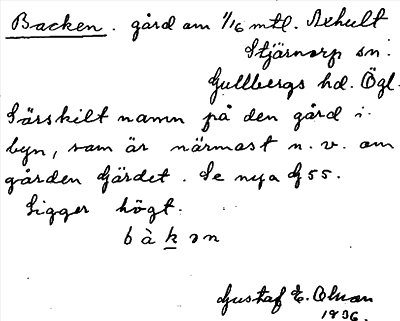 Backen. gård om 1/16 mtl. Åkhult
Stjärnorp sn.
Gullbergs hd. Ögl.
Särskilt namn på den gård i
byn, som är närmast n. v. om
gården Gärdet. Se nya G 55.
Ligger högt.
b à k ə n
Gustaf E. Olsson
1936.